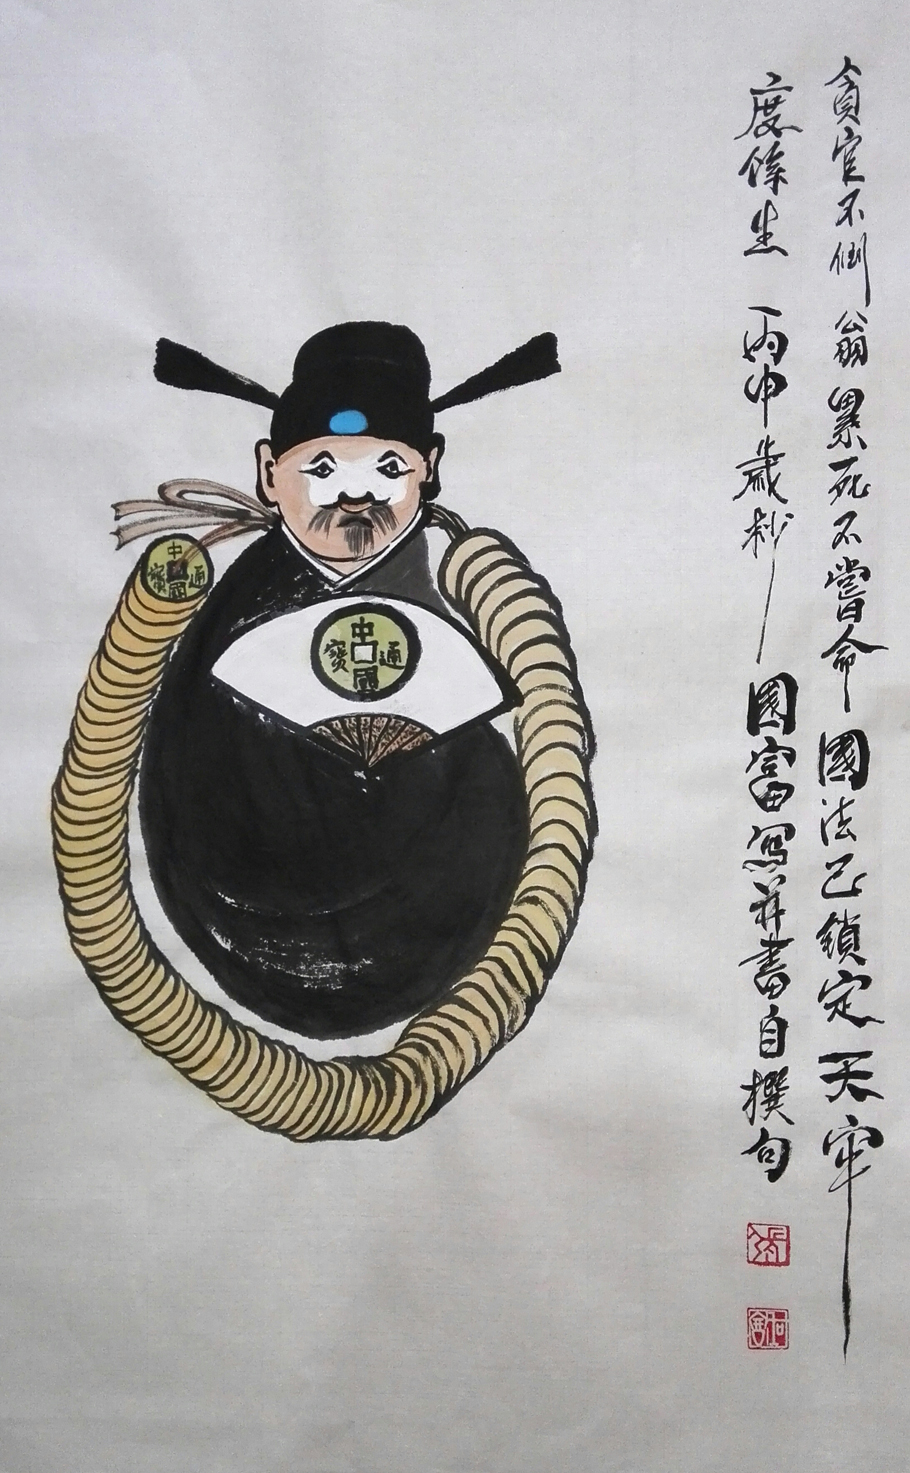 貪官不倒翁累死不當命國法已鎖定天牢
度餘生 丙申歲杪 國富寫并書自撰句
中國通寶
中國通寶